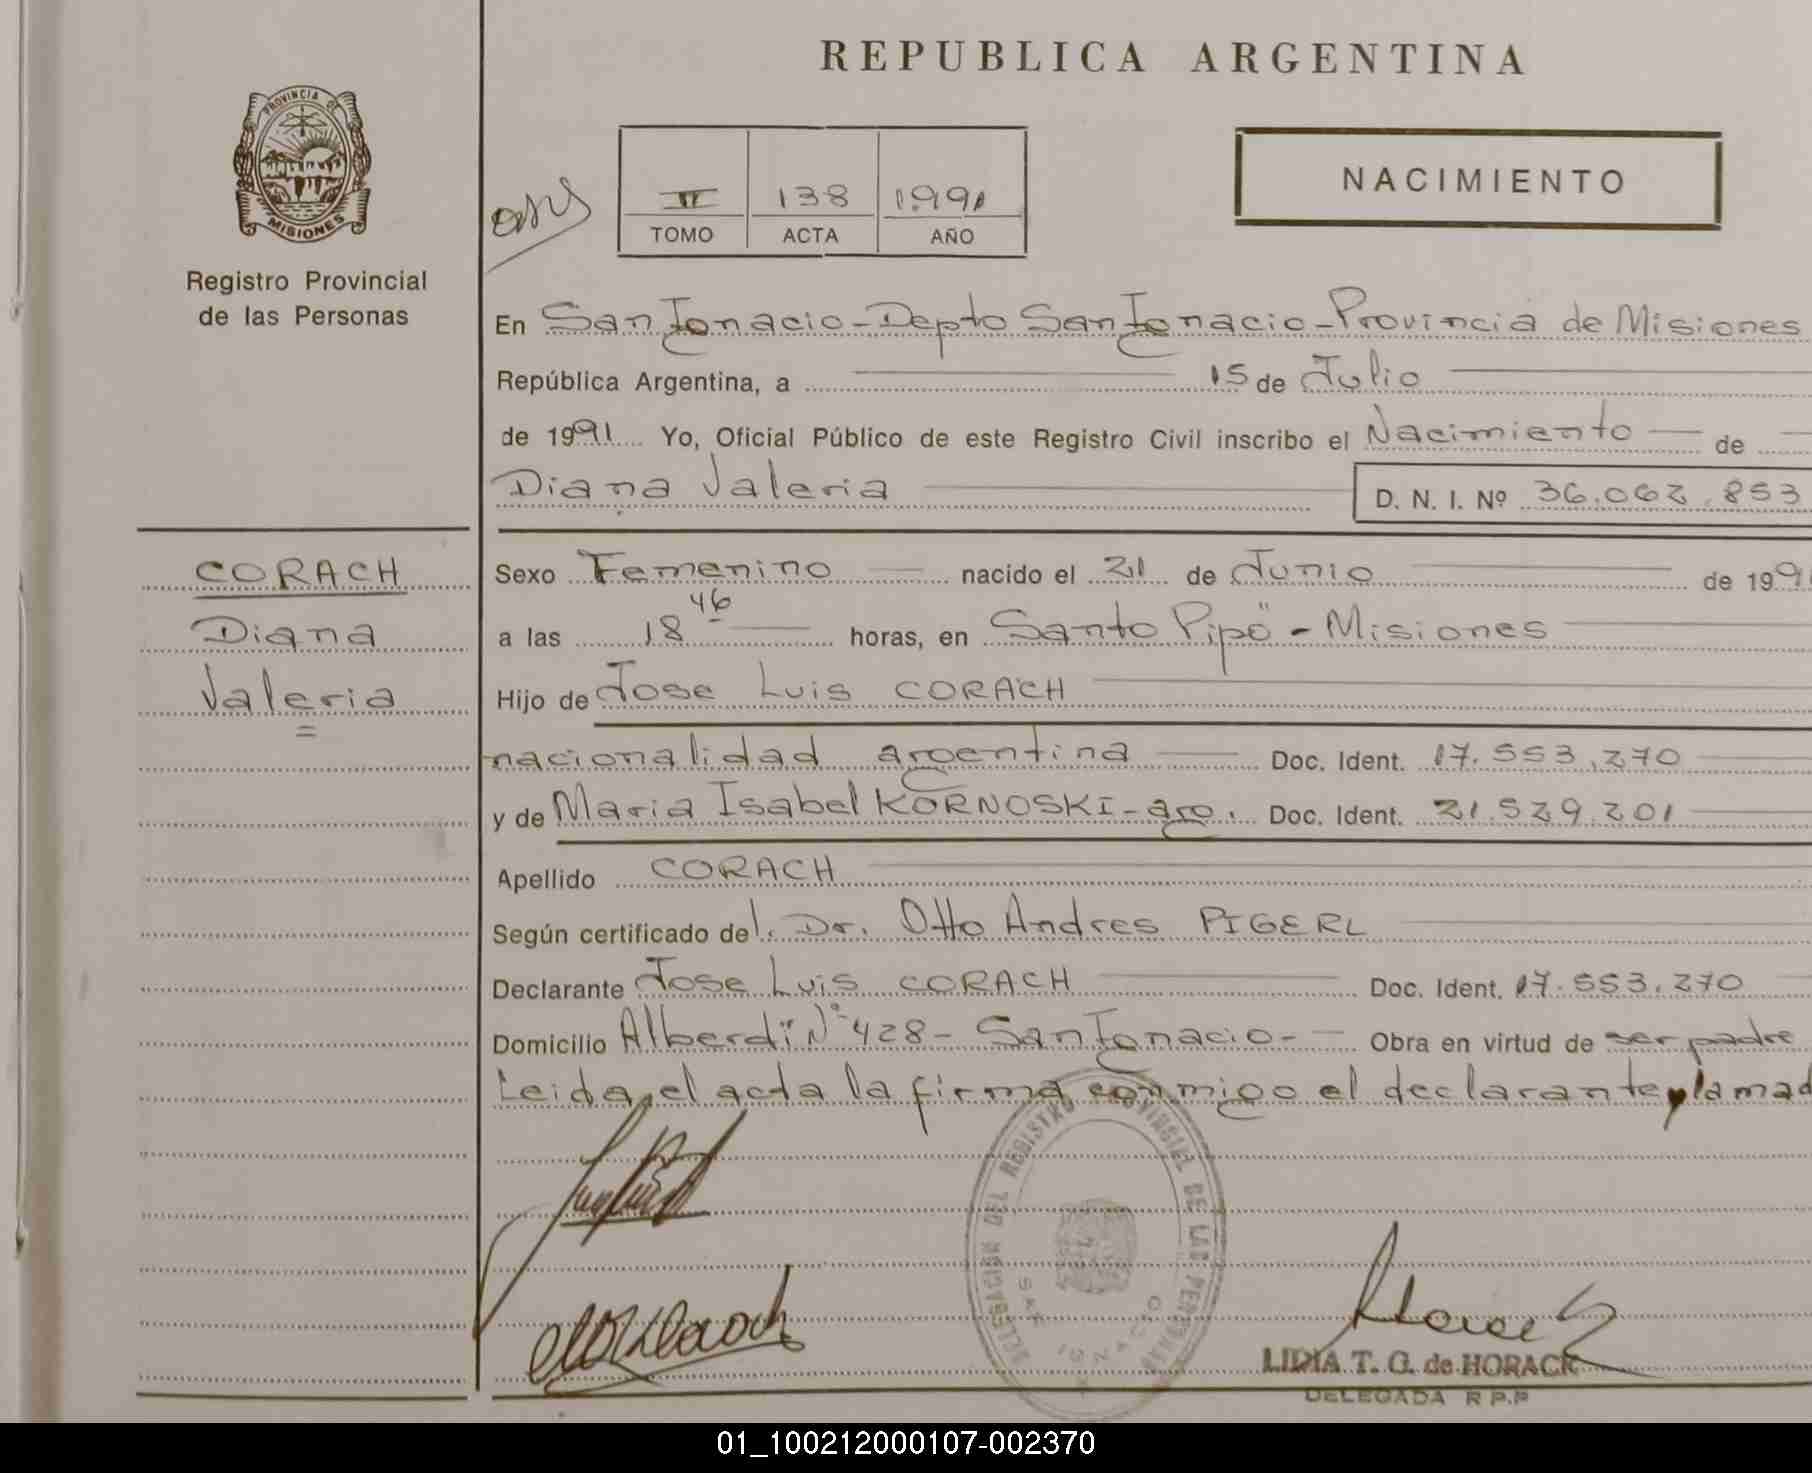 REPUBLICA ARGENTINA
PROVINCIA DE
MISIONES
Registro Provincial
de las Personas
II 138 1991
TOMO ACTA AÑO
NACIMIENTO
En San Ignacio - Depto San Ignacio - Provincia de Misiones
República Argentina, a 15 de Julio
de 1991 Yo, Oficial Público de este Registro Civil inscribo el Nacimiento de
Diana Valeria D. N. I. Nº 36.062.853
CORACH
Diana
Valeria
Sexo Femenino nacido el 21 de Junio de 199
a las 18 46 horas, en Santo Pipó - Misiones
Hijo de Jose Luis CORACH
nacionalidad argentina Doc. Ident. 17.553.270
y de Maria Isabel KORNOSKI - arg. Doc. Ident. 21.529.201
Apellido CORACH
Según certificado del. Dr. Otto Andres PIGERL
Declarante Jose Luis CORACH Doc. Ident. 17.553.270
Domicilio Alberdi Nº 428 - San Ignacio - Obra en virtud de ser padre
Leida el acta la firma conmigo el declarante y la mad
DELEGACION DEL REGISTRO PROVINCIAL DE LAS PERSONAS
SAN IGNACIO
LIDIA T. G. de HORACK
DELEGADA R.P.P
01_100212000107-002370